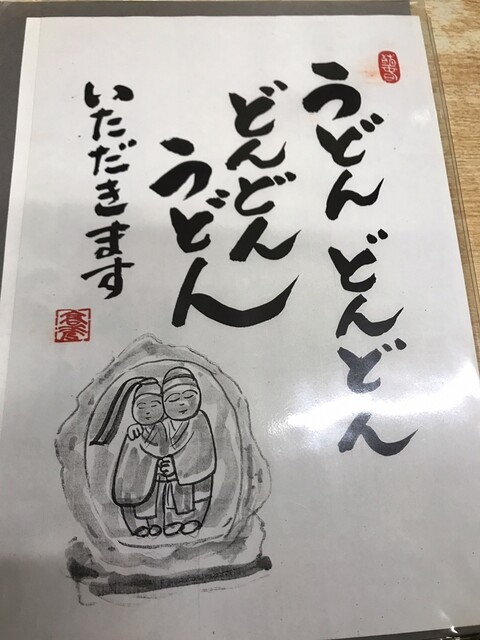 うどんどんどん
どんどん
うどん
いただきます